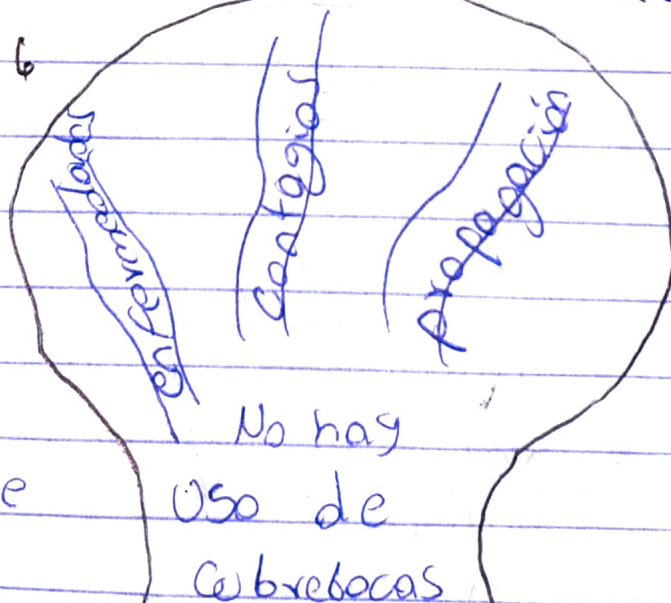 6
enfermedades
Contagios
propagación
No hay
e
Uso de
Cubrebocas